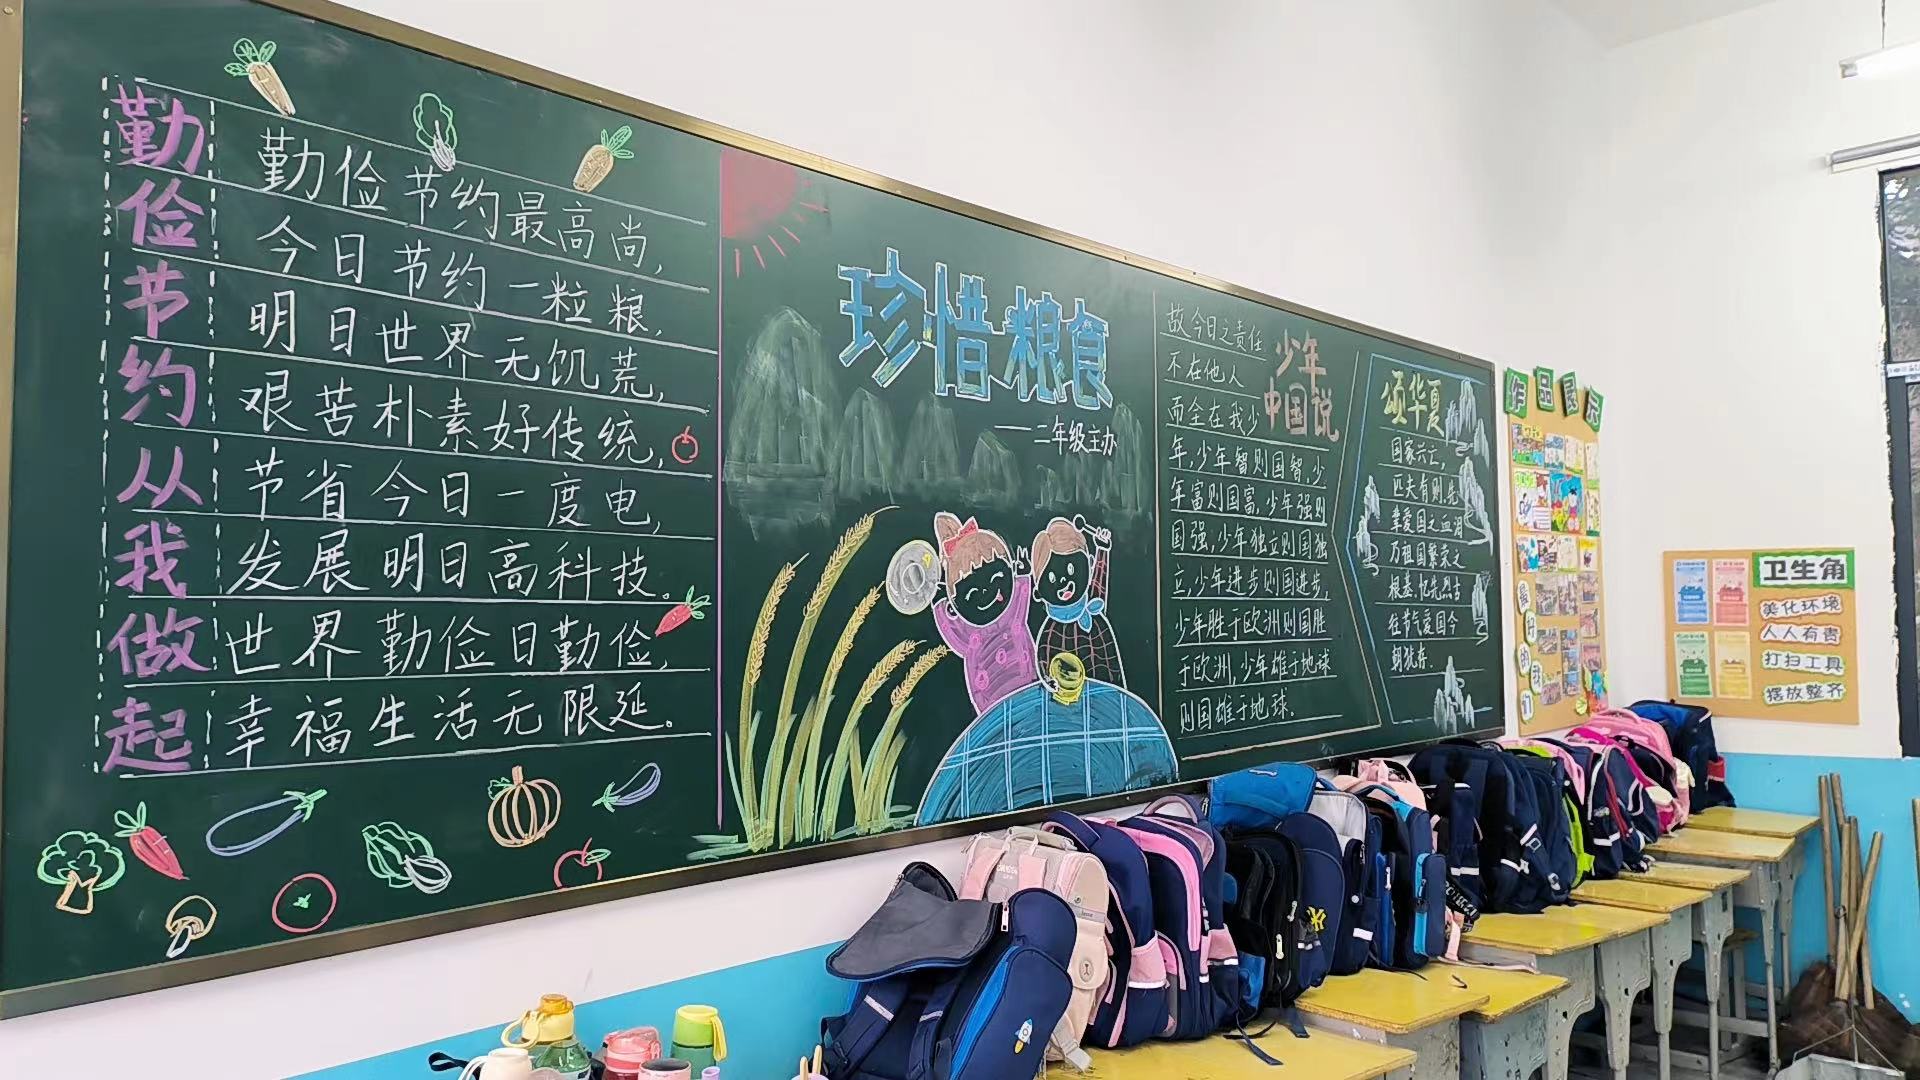 勤俭节约从我做起
勤俭节约最高尚,
今日节约一粒粮,
明日世界无饥荒,
艰苦朴素好传统,
节省今日一度电,
发展明日高科技。
世界勤俭日勤俭,
幸福生活无限延。
珍惜粮食
——二年级主办
少年
中国说
故今日之责任
不在他人
而全在我少
年,少年智则国智,少
年富则国富,少年强则
国强,少年独立则国独
立,少年进步则国进步,
少年胜于欧洲则国胜
于欧洲,少年雄于地球
则国雄于地球。
颂华夏
国家兴亡,
匹夫有则.先
辈爱国之血泪
乃祖国繁荣之
根基.忆先烈古
往节气爱国今
朝犹存.
作品展示
最好的我们
卫生角
美化环境
人人有责
打扫工具
摆放整齐